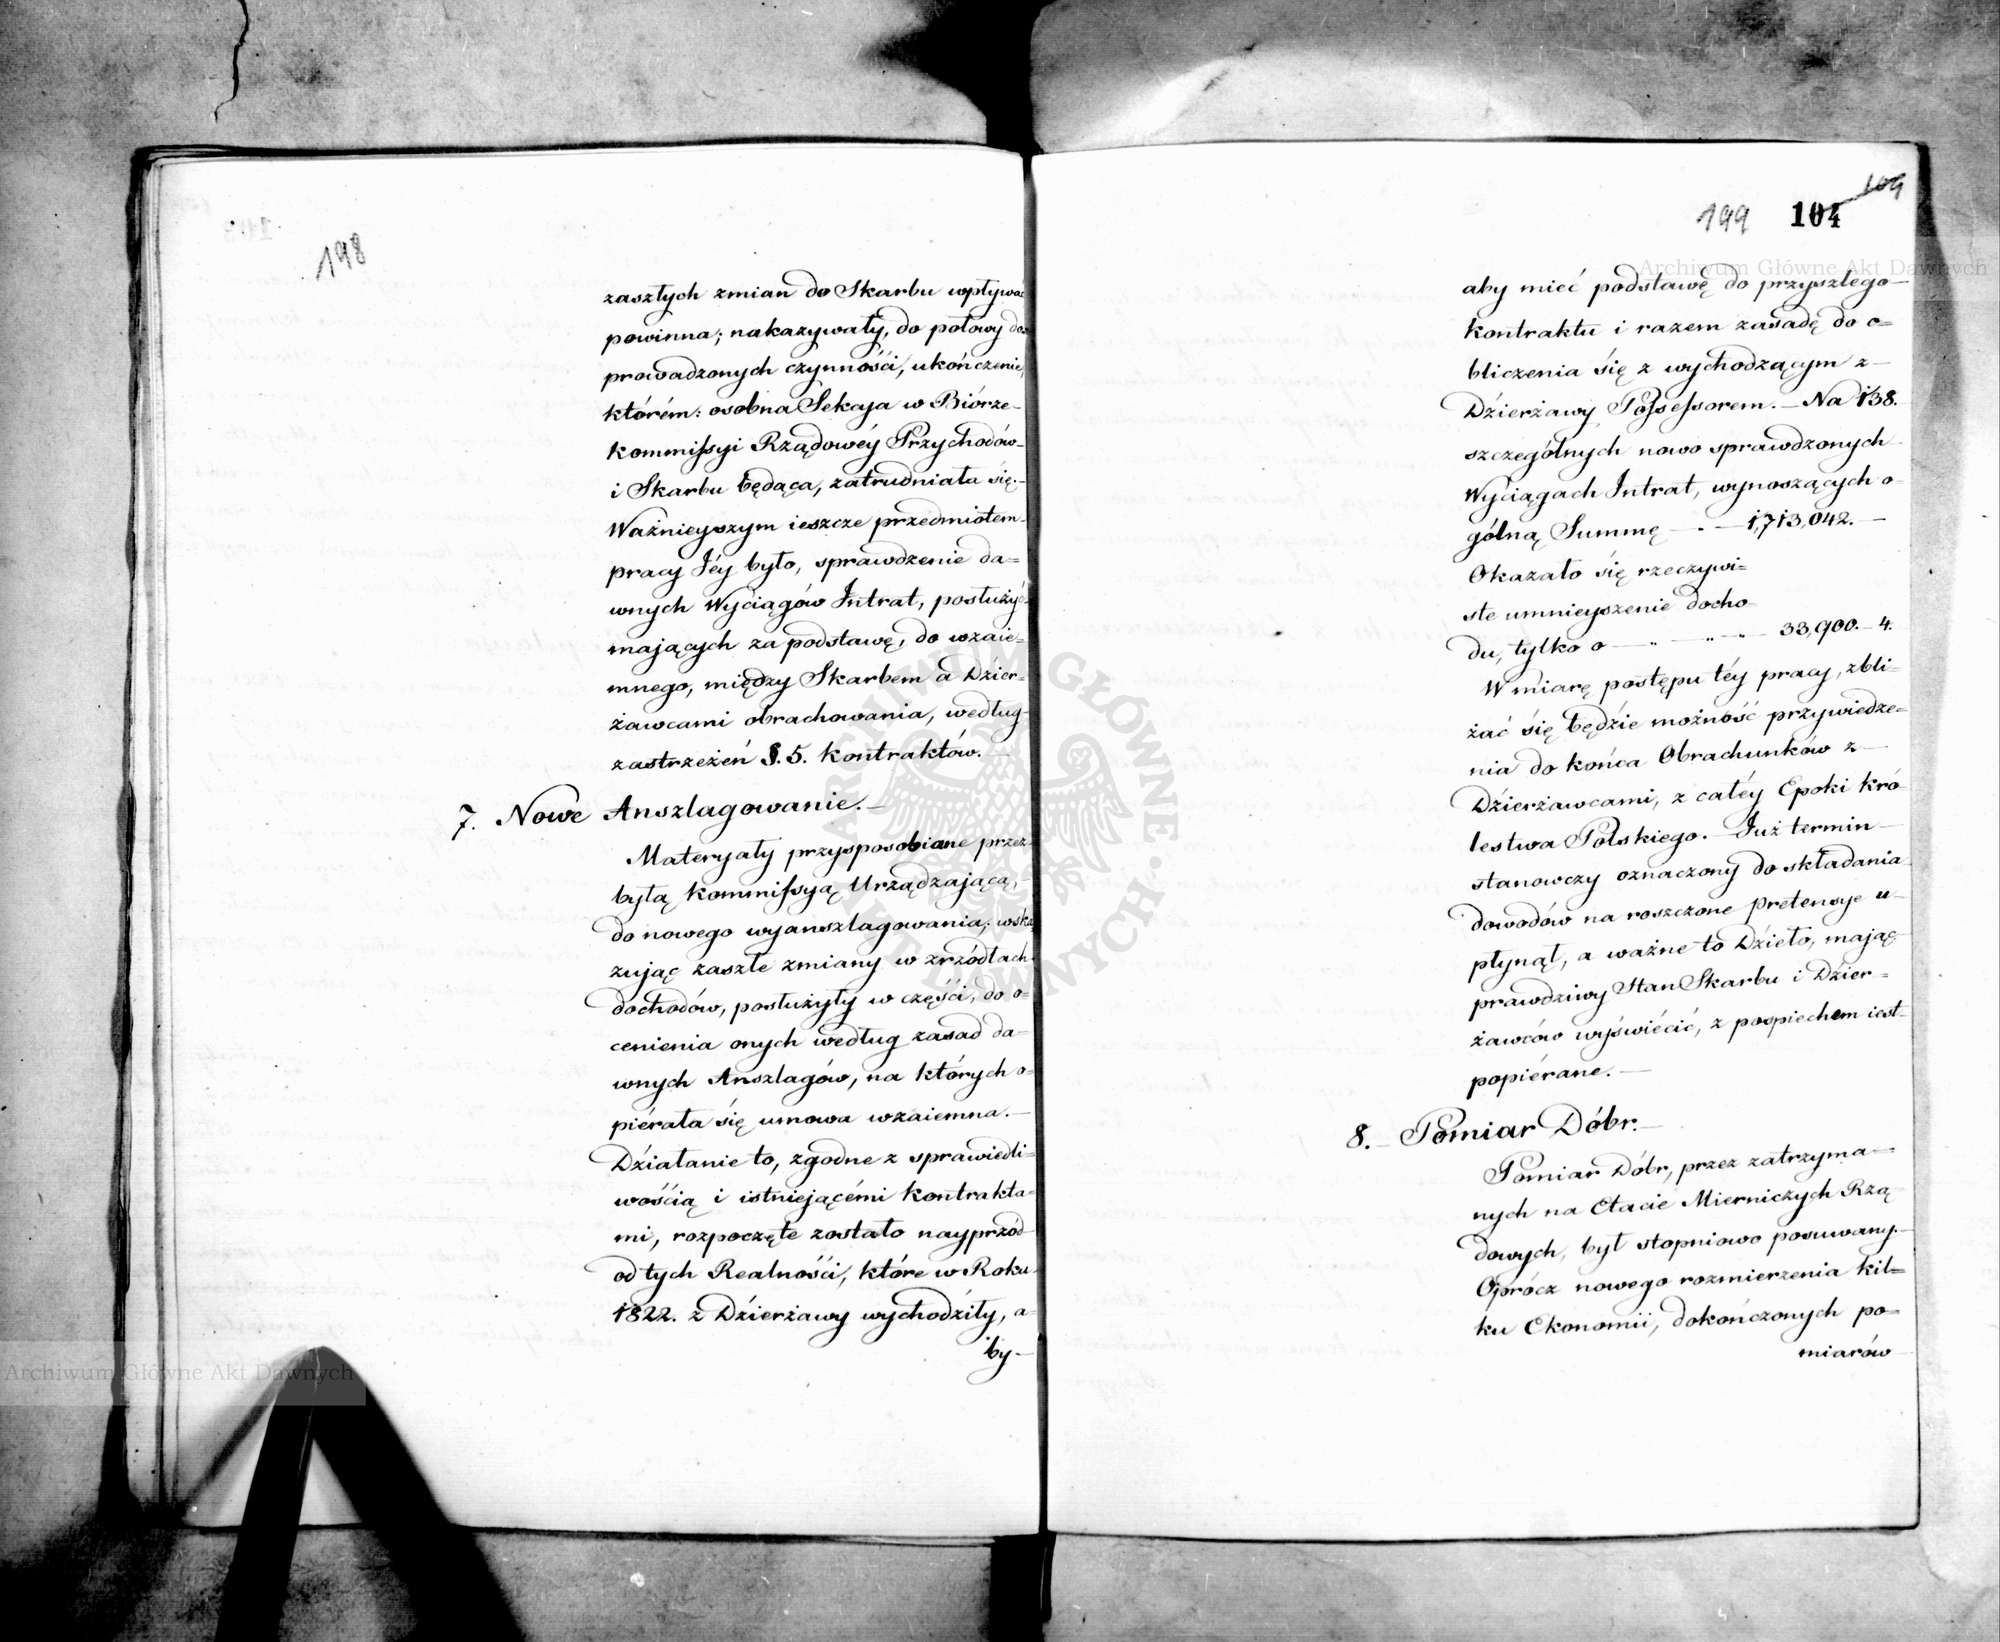 198
zaszłych zmian do Skarbu wpływać
powinna; nakazywały, do połowy do=
prowadzonych czynności, ukończenie,
którém: osobna Sekcyja w Biórze-
Kommifsyi Rządowéy Przychodów-
i Skarbu będąca, zatrudniała się.-
Ważnieyszym ieszcze przedmiotem-
pracy Jéy było, sprawdzenie da=
wnych Wyciągów Intrat, posłużyć-
mających za podstawę, do wzaie=
mnego, między Skarbem a Dzier-
żawcami obrachowania, według-
zastrzeżeń §. 5. Kontraktów.-
7. Nowe Anszlagowanie.-
Materyały przysposobiane przez-
byłą Kommifsyą Urządzaiącą,-
do nowego wyanszlagowania, wska
zując zaszłe zmiany w zrzódłach
dochodów, posłużyły w części, do o=
cenienia onych według zasad da=
wnych Anszlagów, na których o=
piérała się umowa wzaiemna.-
Działanie to, zgodne z sprawiedli=
wością i istniejącémi Kontrakta=
mi, rozpoczęte zostało nayprzód-
od tych Realności, które w Roku
1822. z Dzierżawy wychodziły, a=
by-
109
199 104
aby mieć podstawę do przyszłego-
kontraktu i razem zasadę do o=
bliczenia się z wychodzącym z-
Dzierżawy Pofsefsorem.-Na 138.
szczególnych nowo sprawdzonych
Wyciągach Intrat, wynoszących o-
gólną Summę - . - 1,713,042.-
Okazało się rzeczywi=
ste umnieyszenie docho-
du, tylko o - " - " - 33,900.-4.
W miarę postępu téy pracy, zbli-
żać się będzie możność przywiedze=
nia do końca Obrachunków z-
Dzierżawcami, z całéy Epoki Kró-
lestwa Polskiego.- Już termin-
stanowczy oznaczony do składania
dowodów na roszczone pretensye u-
płynął, a ważne to Dzieło, mając
prawdziwy Stan Skarbu i Dzier=
żawców wyświécić, z pospiechem iest-
popiérane.-
8.- Pomiar Dóbr.-
Pomiar Dóbr, przez zatrzyma-
nych na Etacie Mierniczych Rzą-
dowych, był stopniowo posuwany.-
Oprócz nowego rozmierzenia kil=
ku Ekonomii, dokończonych po=
miarów
Archiwum Główne Akt Dawnych
Archiwum Główne Akt Dawnych
ARCHIWUM GŁÓWNE AKT DAWNYCH